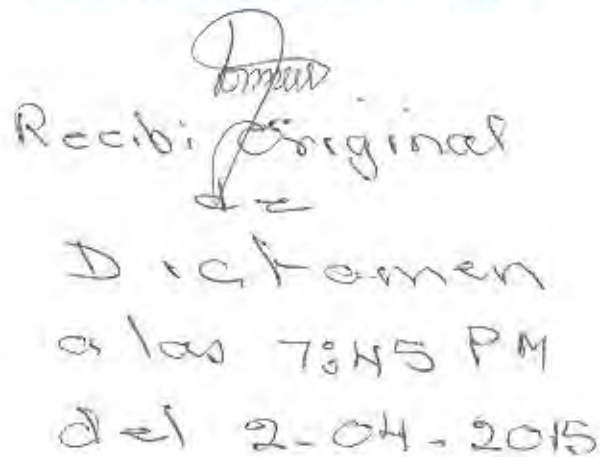 Recibi Original
de
Dictamen
a las 7:45 PM
del 2-04-2015